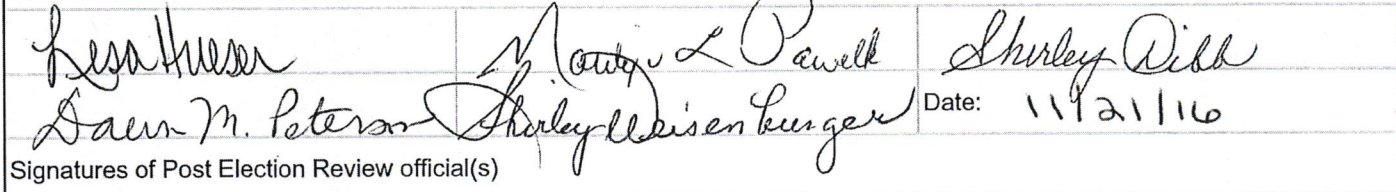 Lesa Hueser L Powell Shirley Dibb
Dawn M. Peterson Shirley Weisenburger Date: 11/21/16
Signatures of Post Election Review official(s)